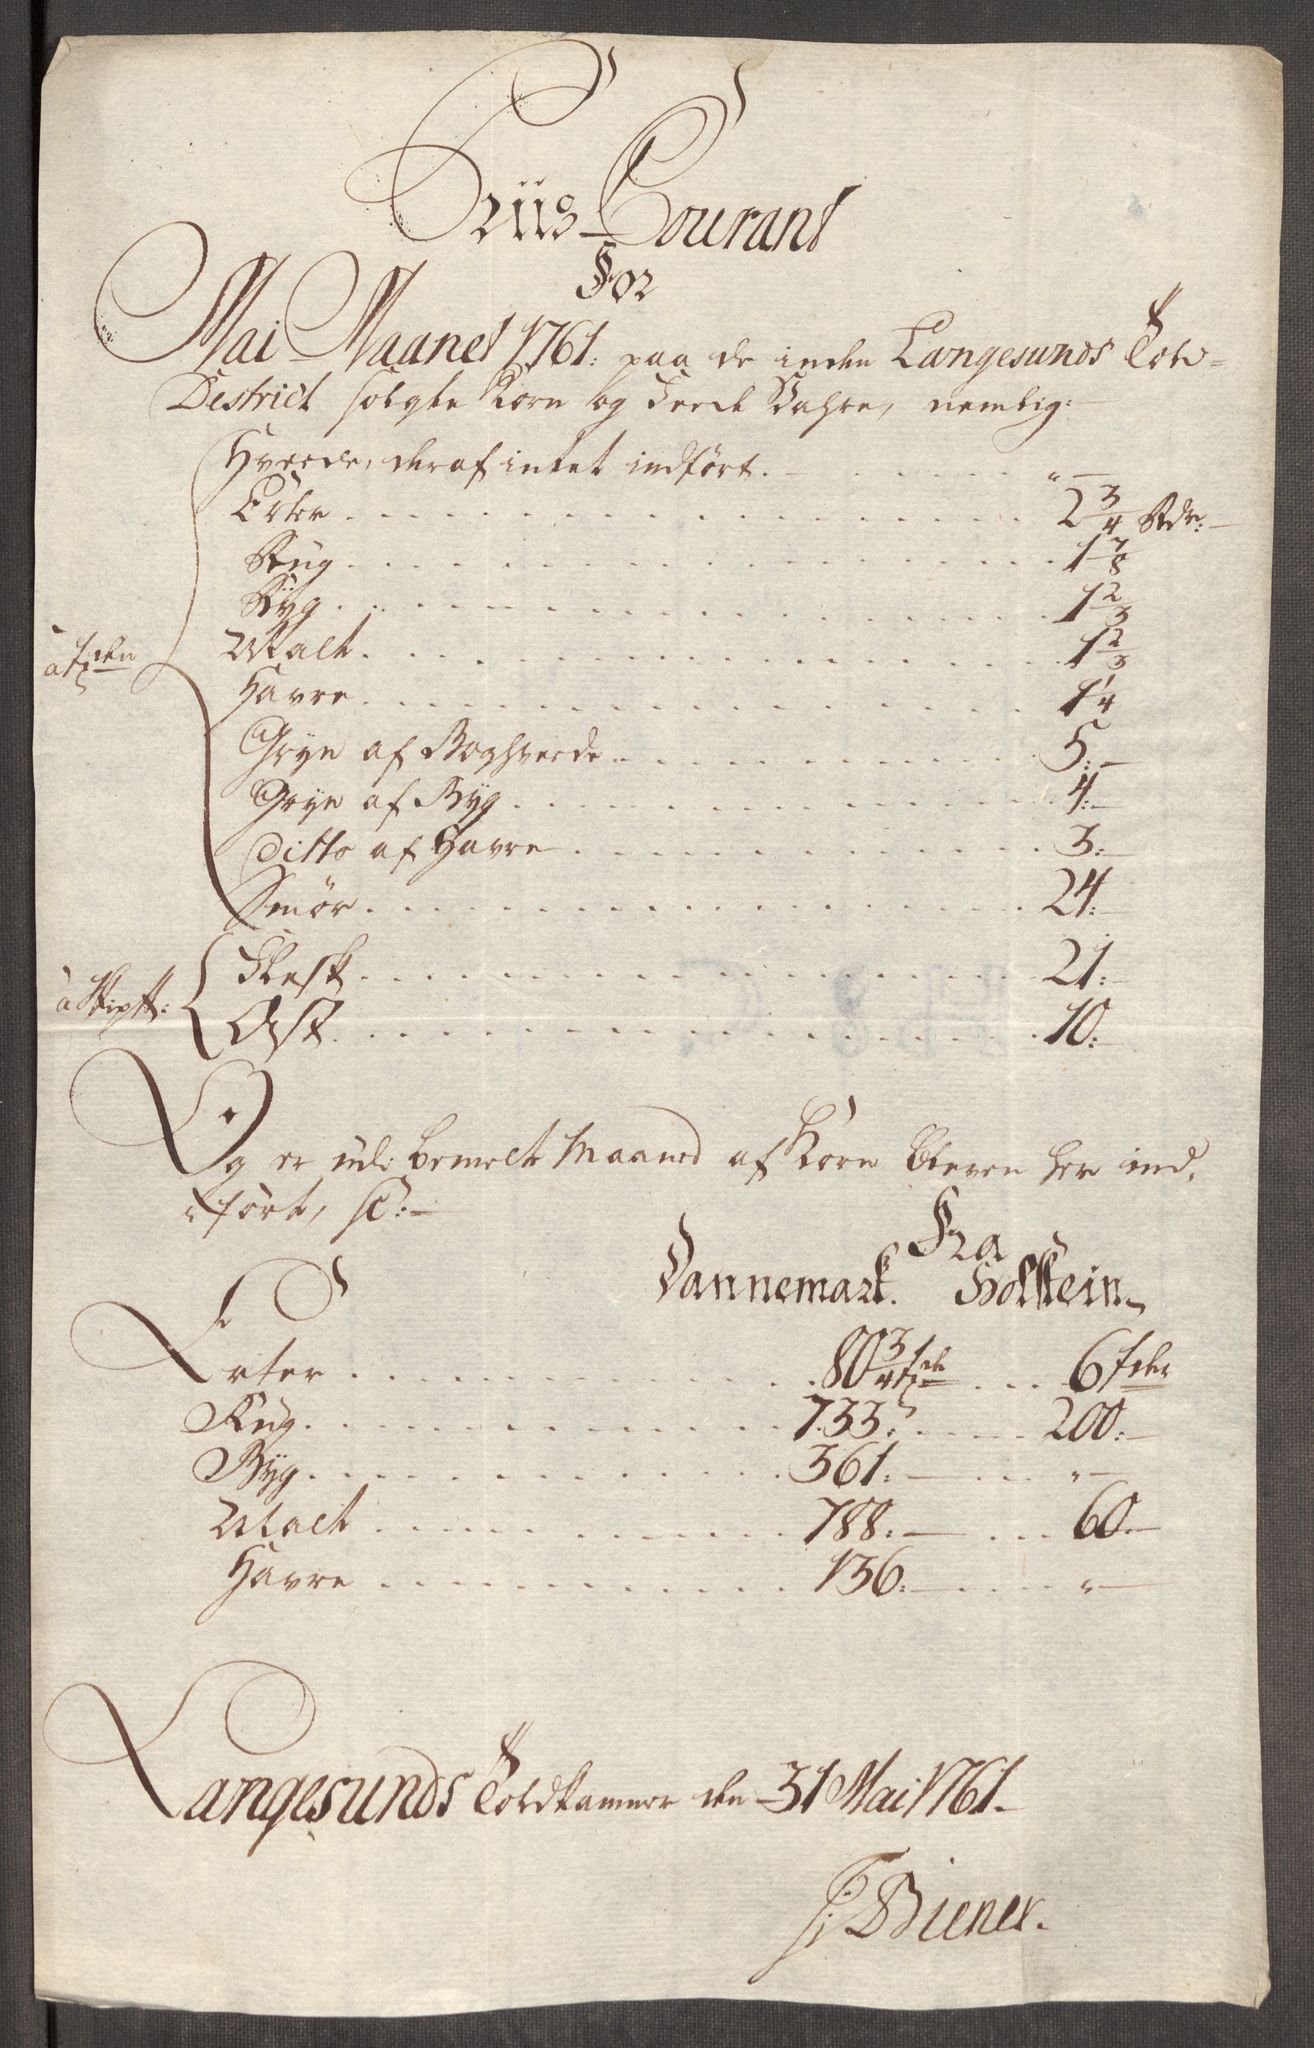 Priis-Courant
For
Mai Maanet 1761: paa de inden Langesunds Told-
District solgte Korn og Feede Vahre, nemlig:
Hveede, deraf intet indført. "
Erter 2 3/4 Rdr:
Rug 1 7/8
Byg 1 2/3
à Tden
Malt 1 2/3
Havre 1 1/4
Gryn af Boghvede 5:
Gryn af Byg 4:
Ditto af Havre 3:
Smør 24:
Flesk 21:
à Skip℔:
Ost 10:
Og er udi bemelte Maaned af Korn bleven her ind-
ført, sc:
Fra
Dannemark. Holstein
Erter 80 3/4 Tde 6 Tder
Rug 733: 200:
Byg 361: "
Malt 788: 60
Havre 136: "
Langesunds Toldkammer den 31 Mai 1761
Biener.